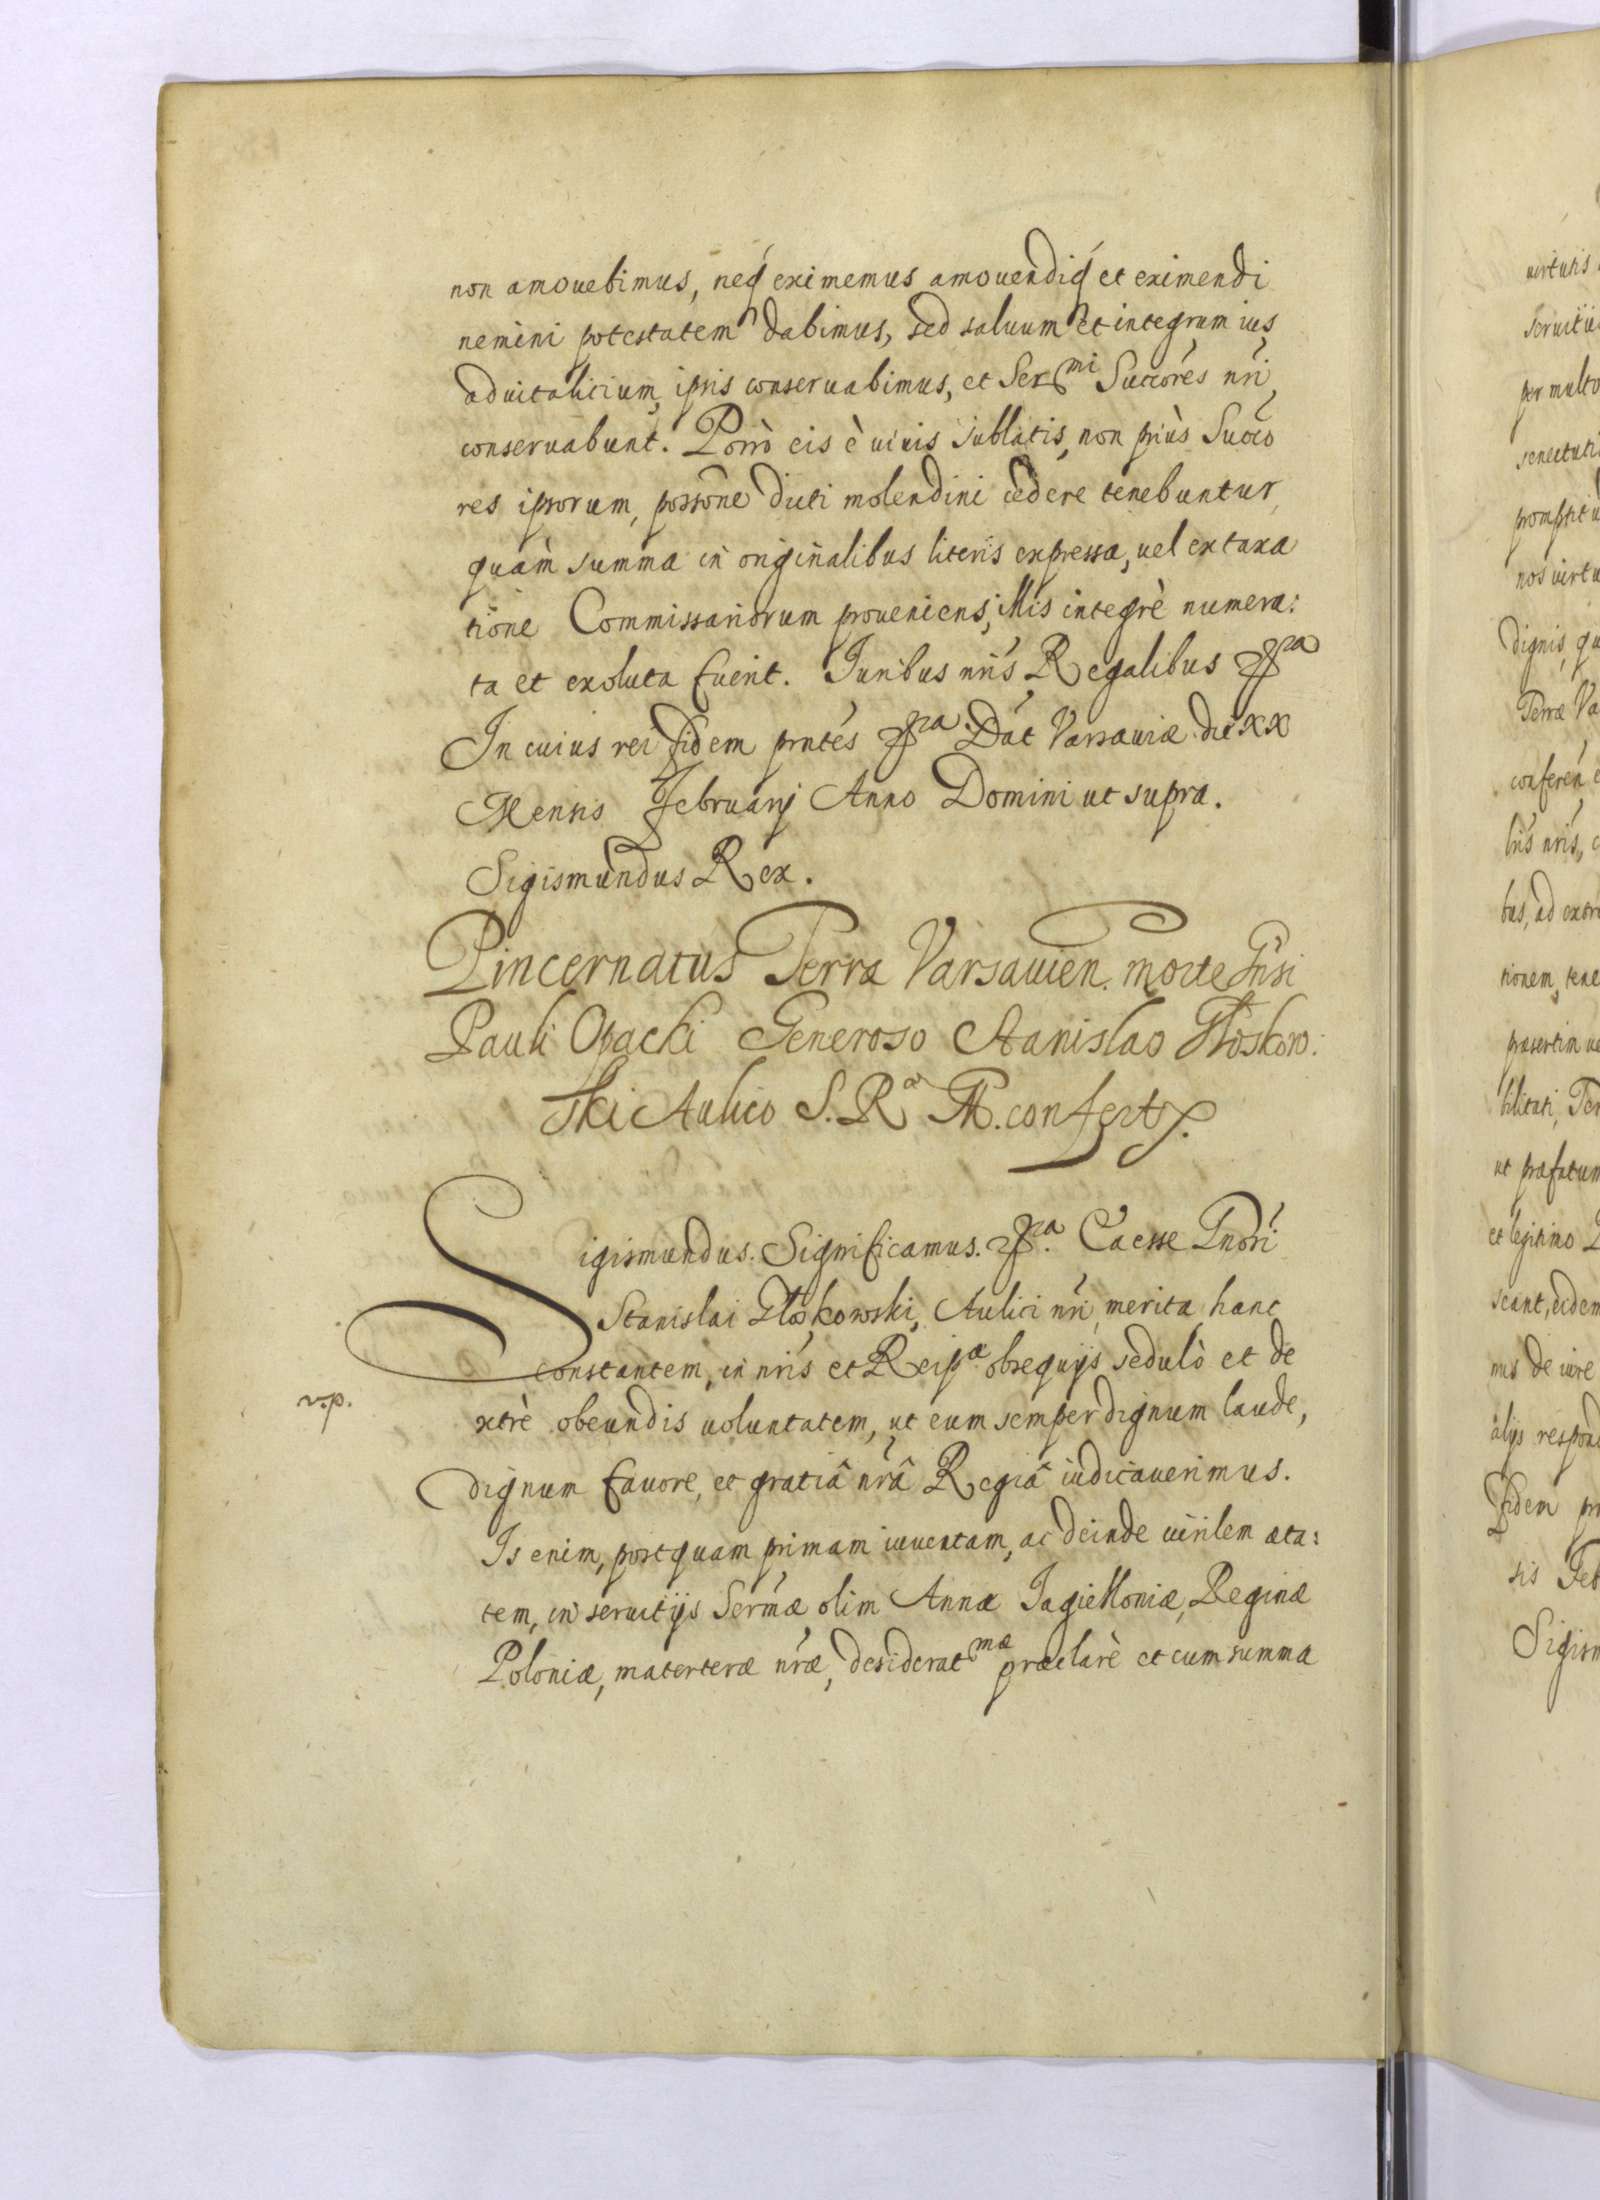 non amouebimus, neq́ eximemus amouendiq́ et eximendi
nemini potestatem dabimus, sed saluum et integrum ius
aduitalitium ipsis conseruabimus, et Ser^mi Succóres nrí
conseruabunt. Porrò eis è uiuis sublatis, non priùs Succo
res ipsorum, possone dicti molendini cedere tenebuntur,
quàm summa in originalibus literis expressa, uel ex taxa
tione Commissariorum proueniens, illis integrè numera:
ta et exoluta fuerit. Iuribus nrís Regalibus
In cuius rei fidem prntés Dat Varsauiæ die XX
Mensis Februarij Anno Domini ut supra.
Sigismundus Rex.
Pincernatus Terræ Varsauien. morte Gnsi
Pauli Opacki Generoso Stanislao Głoskow:
ski Aulico S. R. M. confert
Sigismundus. Significamus. Ea esse Gnori
Stanislai Głoskowski, Aulici nrí merita hanc
constantem, in nrís et Reip^æ obsequijs sedulò et de
v.p.
xtrè obeundis uoluntatem, ut eum semper dignum laude,
dignum fauore, et gratiâ nrâ Regiâ iudicauerimus.
Is enim, postquam primam iuuentam, ac deinde uirilem æta:
tem, in seruitijs Sermæ olim Annæ Jagielloniæ, Reginæ
Poloniæ, materteræ nræ, desiderat^mæ præclarè et cum summa
uirtutis
per multo
nos uirtu
dignis, qu
Terræ Va
conferen
bus, ad extre
tionem, tene
præsertim ue
bilitati, Ter
ut præfatum
et legitimo
scant, eidem
mus de iure
alijs respond
fidem pr
sis Feb
Sigism